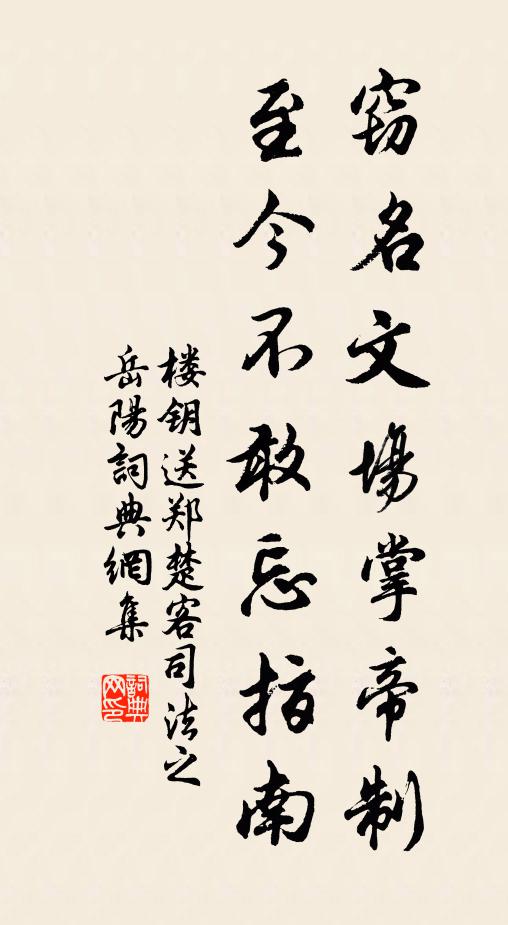 窃名文場掌帝制
至今不敢忘指南
楼钥送郑楚客司法之
岳陽詞典網集
詞典
网印